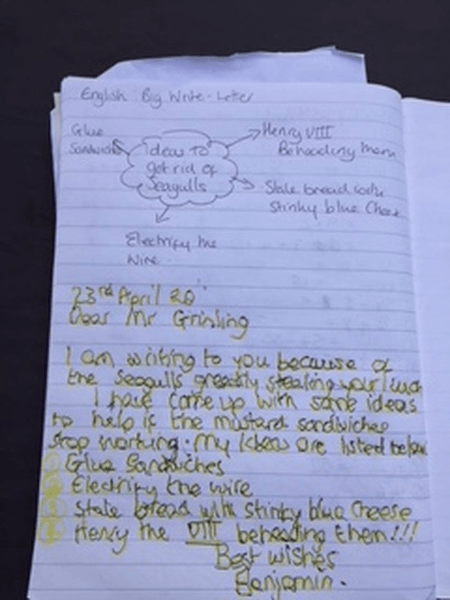 English Big Write - Letter
Glue
Sandwiches
Ideas to
get rid of
Seagulls
Henry VIII
Beheading them
Stale bread with
stinky blue Cheese
Electrify the
wire
23rd April 20
Dear Mr Grinling
I am writing to you because of
the Seagulls greedily stealing your
I have come up with some ideas
to help if the mustard sandwiches
stop working. My Ideas are listed below
Glue Sandwiches
Electrify the wire
Stale bread with stinky blue Cheese
Henry the VIII beheading them!!!
Best wishes
Benjamin.